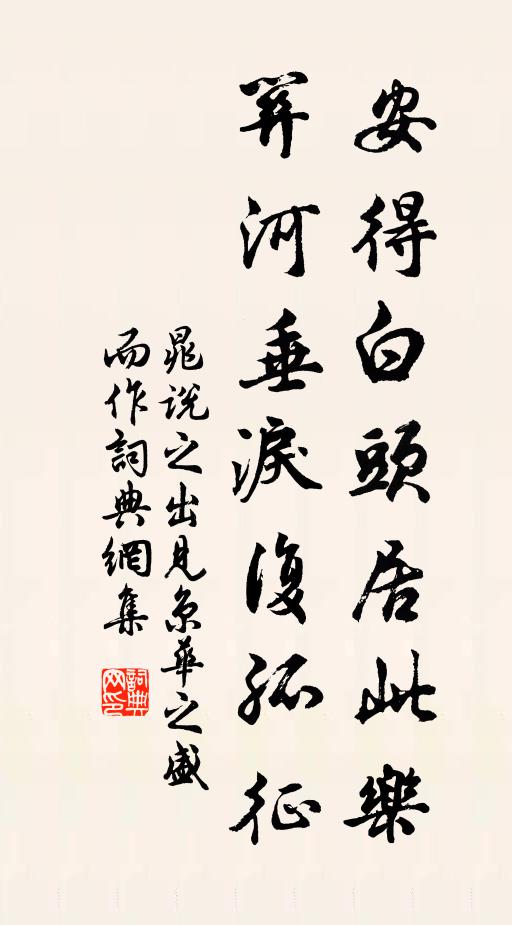 安得白頭居此樂
羿河垂淚復孤征
晁說之出見京華之盛
而作詞典網集
詞典网印